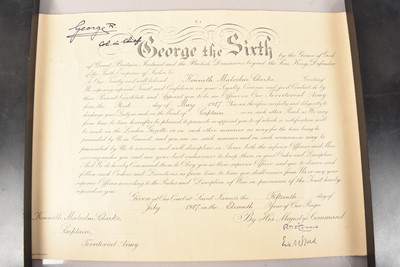 George R.
Col. in Chief
George the Sixth by the Grace of God
of Great Britain, Ireland and the British Dominions beyond the Seas King, Defender
of the Faith, Emperor of India, &c.
To Our Trusty and well beloved Kenneth Malcolm Greeting
We reposing especial Trust and Confidence in your Loyalty, Courage, and good Conduct, do by
these Presents Constitute and Appoint you to be an Officer in Our Territorial Army
from the First day of May 1947. You are therefore carefully and diligently to
discharge your Duty as such in the Rank of Captain or in such other Rank as We may
from time to time hereafter be pleased to promote or appoint you to of which a notification will
be made in the London Gazette, or in such other manner as may for the time being be
prescribed by Us in Council, and you are in such manner and on such occasions as may be
prescribed by Us to exercise and well discipline in Arms both the inferior Officers and Men
serving under you and use your best endeavours to keep them in good Order and Discipline.
And We do hereby Command them to Obey you as their superior Officer, and you to observe and
follow such Orders and Directions as from time to time you shall receive from Us, or any your
superior Officer, according to the Rules and Discipline of War, in pursuance of the Trust hereby
reposed in you.
Given at Our Court, at Saint James's, the Fifteenth day of
July 1947 in the Eleventh Year of Our Reign
By His Majesty's Command
Kenneth Malcolm
Captain,
Territorial Army